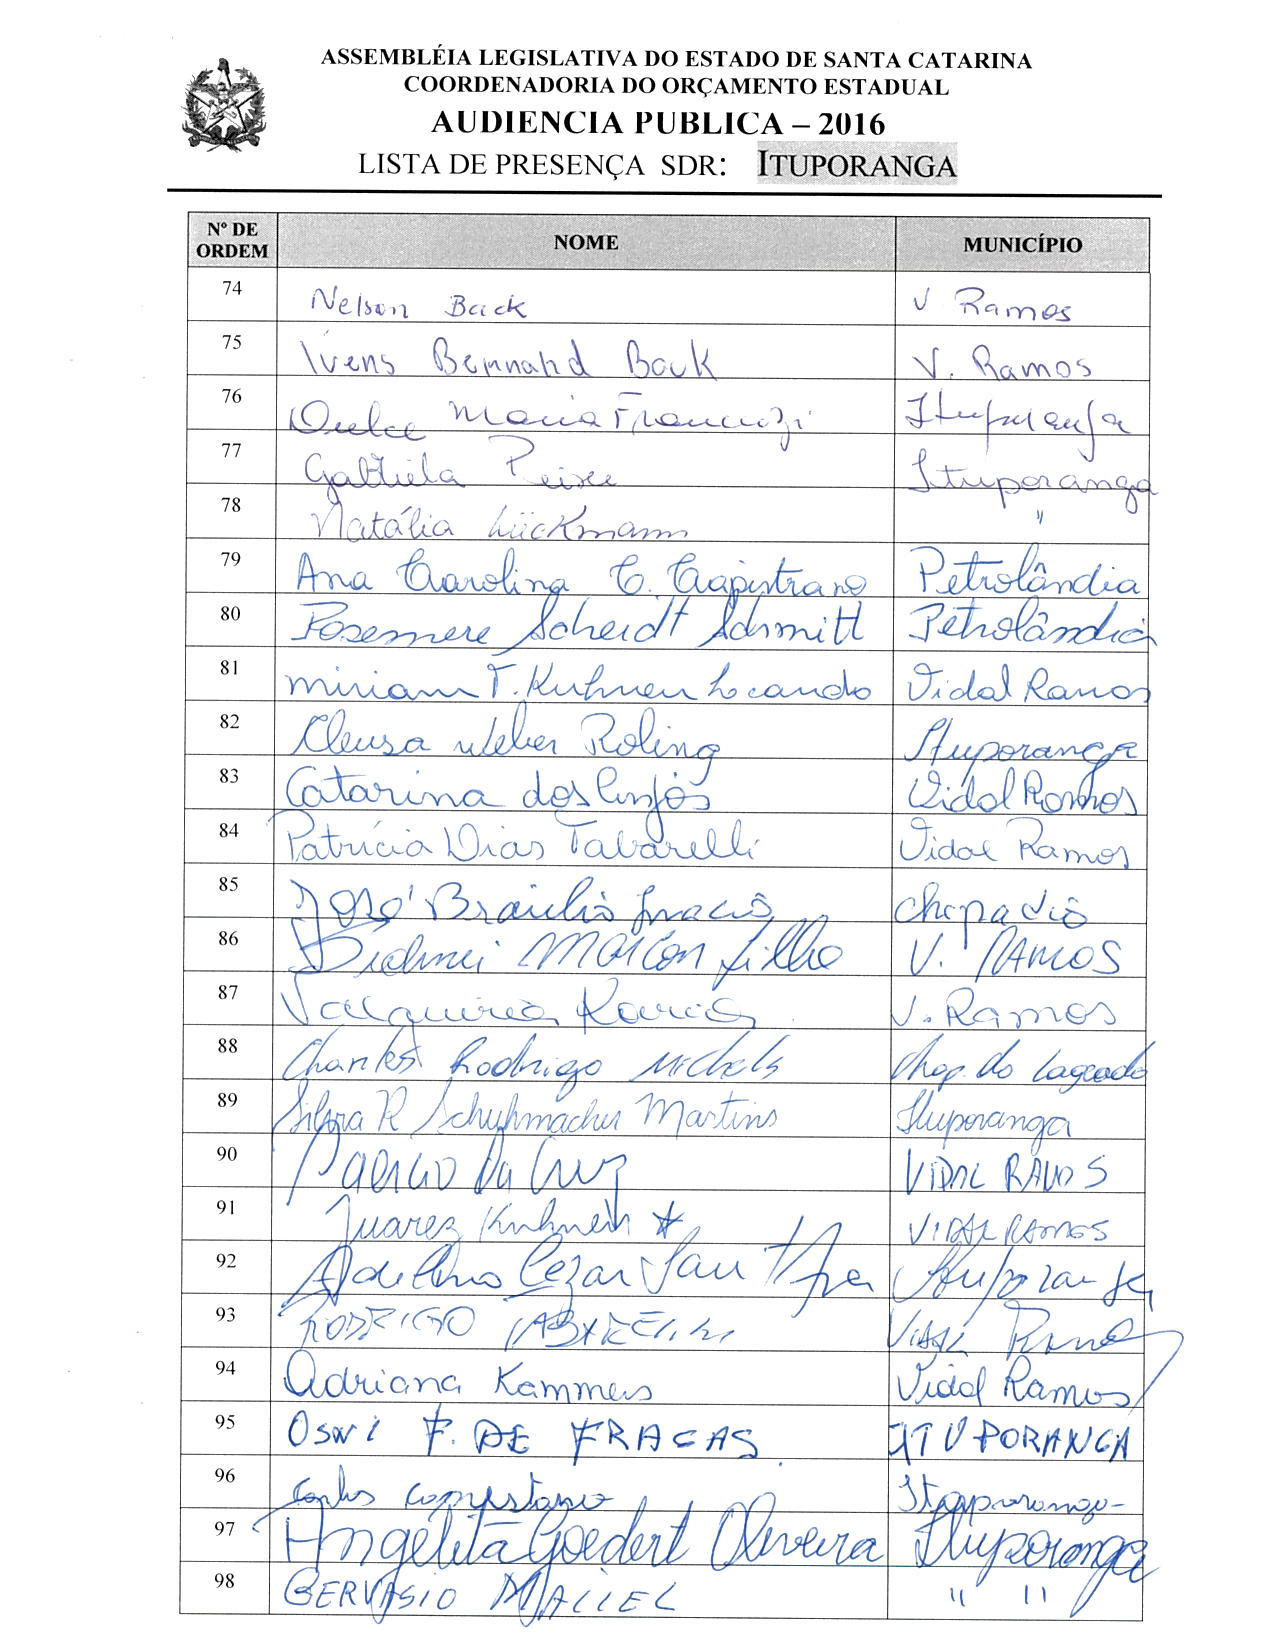 ASSEMBLÉIA LEGISLATIVA DO ESTADO DE SANTA CATARINA
COORDENADORIA DO ORÇAMENTO ESTADUAL
AUDIENCIA PUBLICA – 2016
LISTA DE PRESENÇA SDR: ITUPORANGA
Nº DE ORDEM NOME MUNICÍPIO
74 Nelson Back V Ramos
75 Ivens Bernnahd Back V. Ramos
76 Dulce Maria Ituporanga
77 Gabriela Ituporanga
78 Natália Lückmann "
79 Ana Carolina C. Capistrano Petrolândia
80 Rosemere Scheidt Schmitt Petrolândia
81 Miriam T. Kuhnen Locando Vidal Ramos
82 Cleusa Weber Roling Ituporanga
83 Catarina dos Anjos Vidal Ramos
84 Patrícia Dias Tabarelli Vidal Ramos
85 José Braulio Inacio
86 Marcon Filho V. RAMOS
87 V. Ramos
88 Charles Rodrigo Michels Chap. do Lageado
89 Silvia R Schuhmacher Martins Ituporanga
90 DA CRUZ VIDAL RAMOS
91 Juarez Kuhnen VIDAL RAMOS
92 Cezar Ituporanga
93 RODRIGO Vidal Ramos
94 Adriana Kammers Vidal Ramos
95 F. DE ITUPORANGA
96 Carlos Ituporanga
97 Angelita Goedert Oliveira Ituporanga
98 GERVÁSIO MACIEL " "